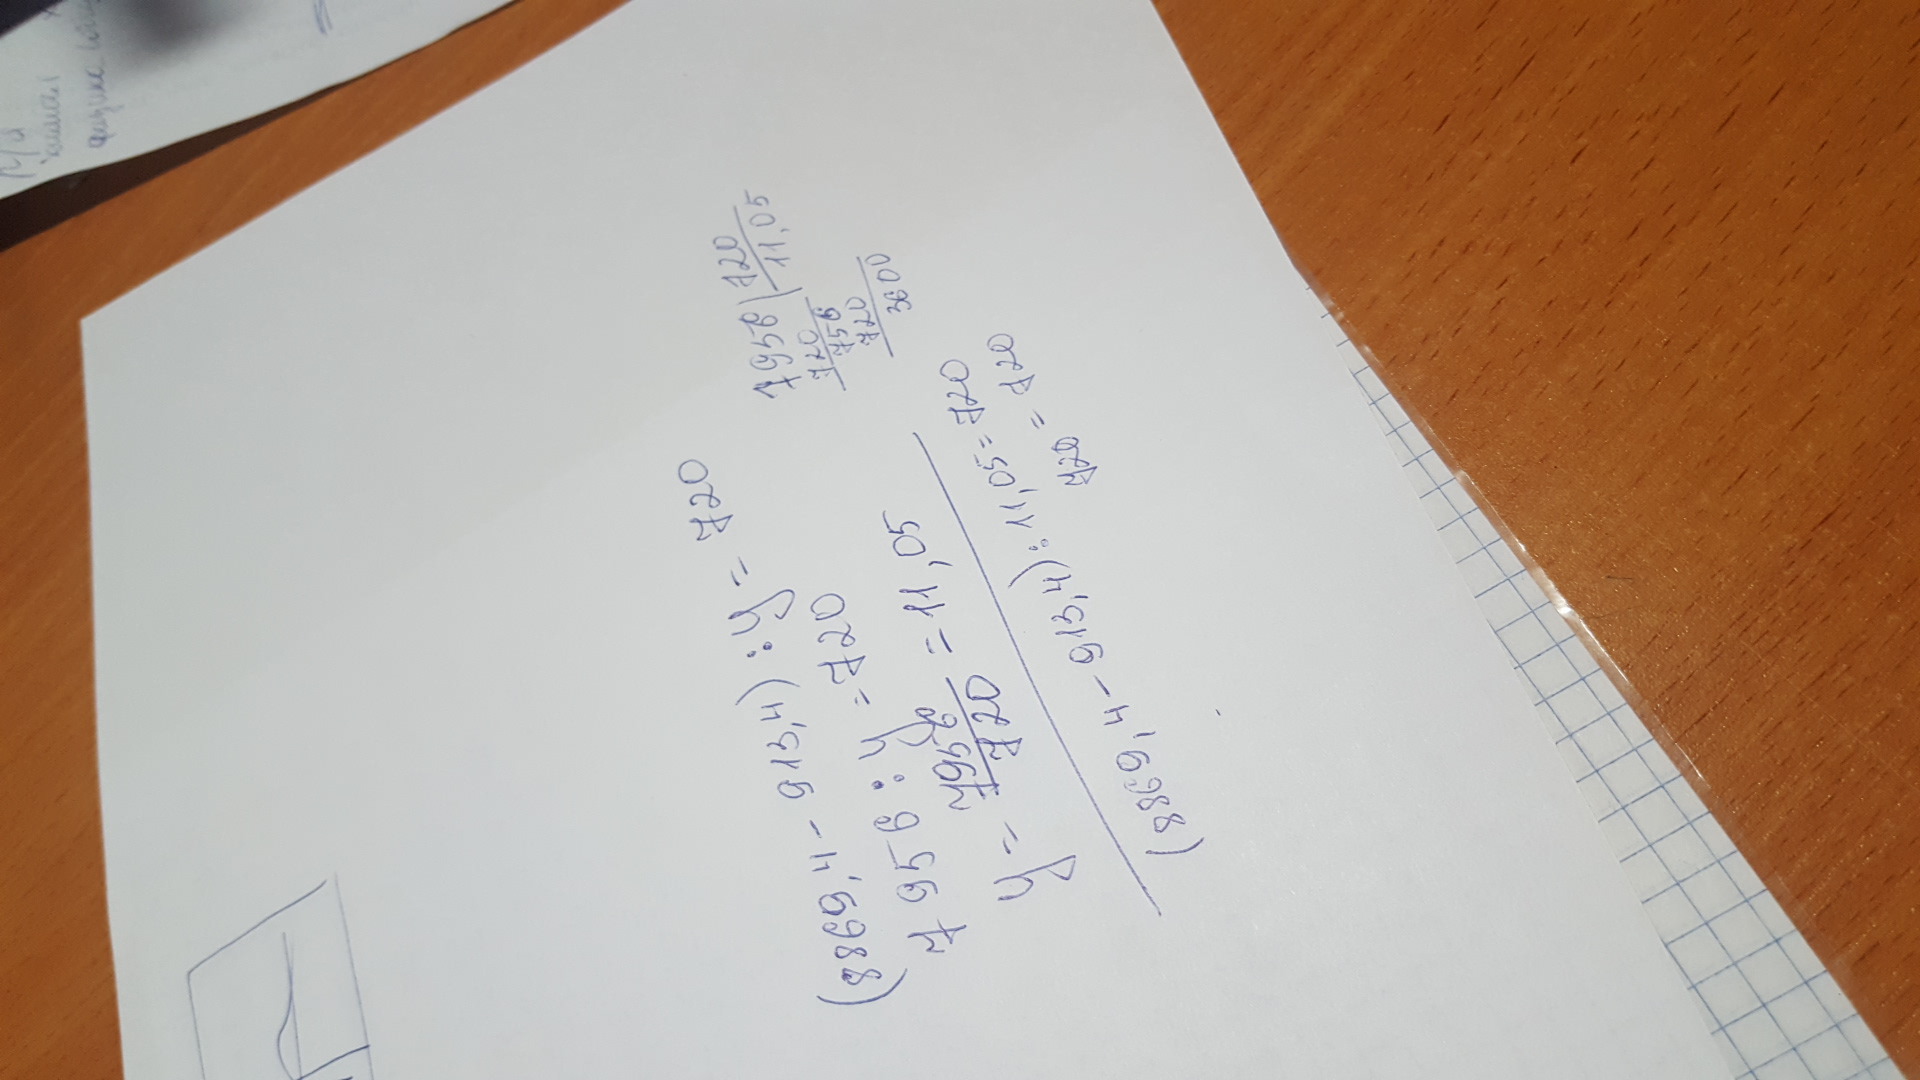 (8869,4 - 913,4) : y = 720
7956 : y = 720
y = 7956/720 = 11,05
(8869,4 - 913,4) : 11,05 = 720
720 = 720
7956 | 720
720 | 11,05
756
720
3600